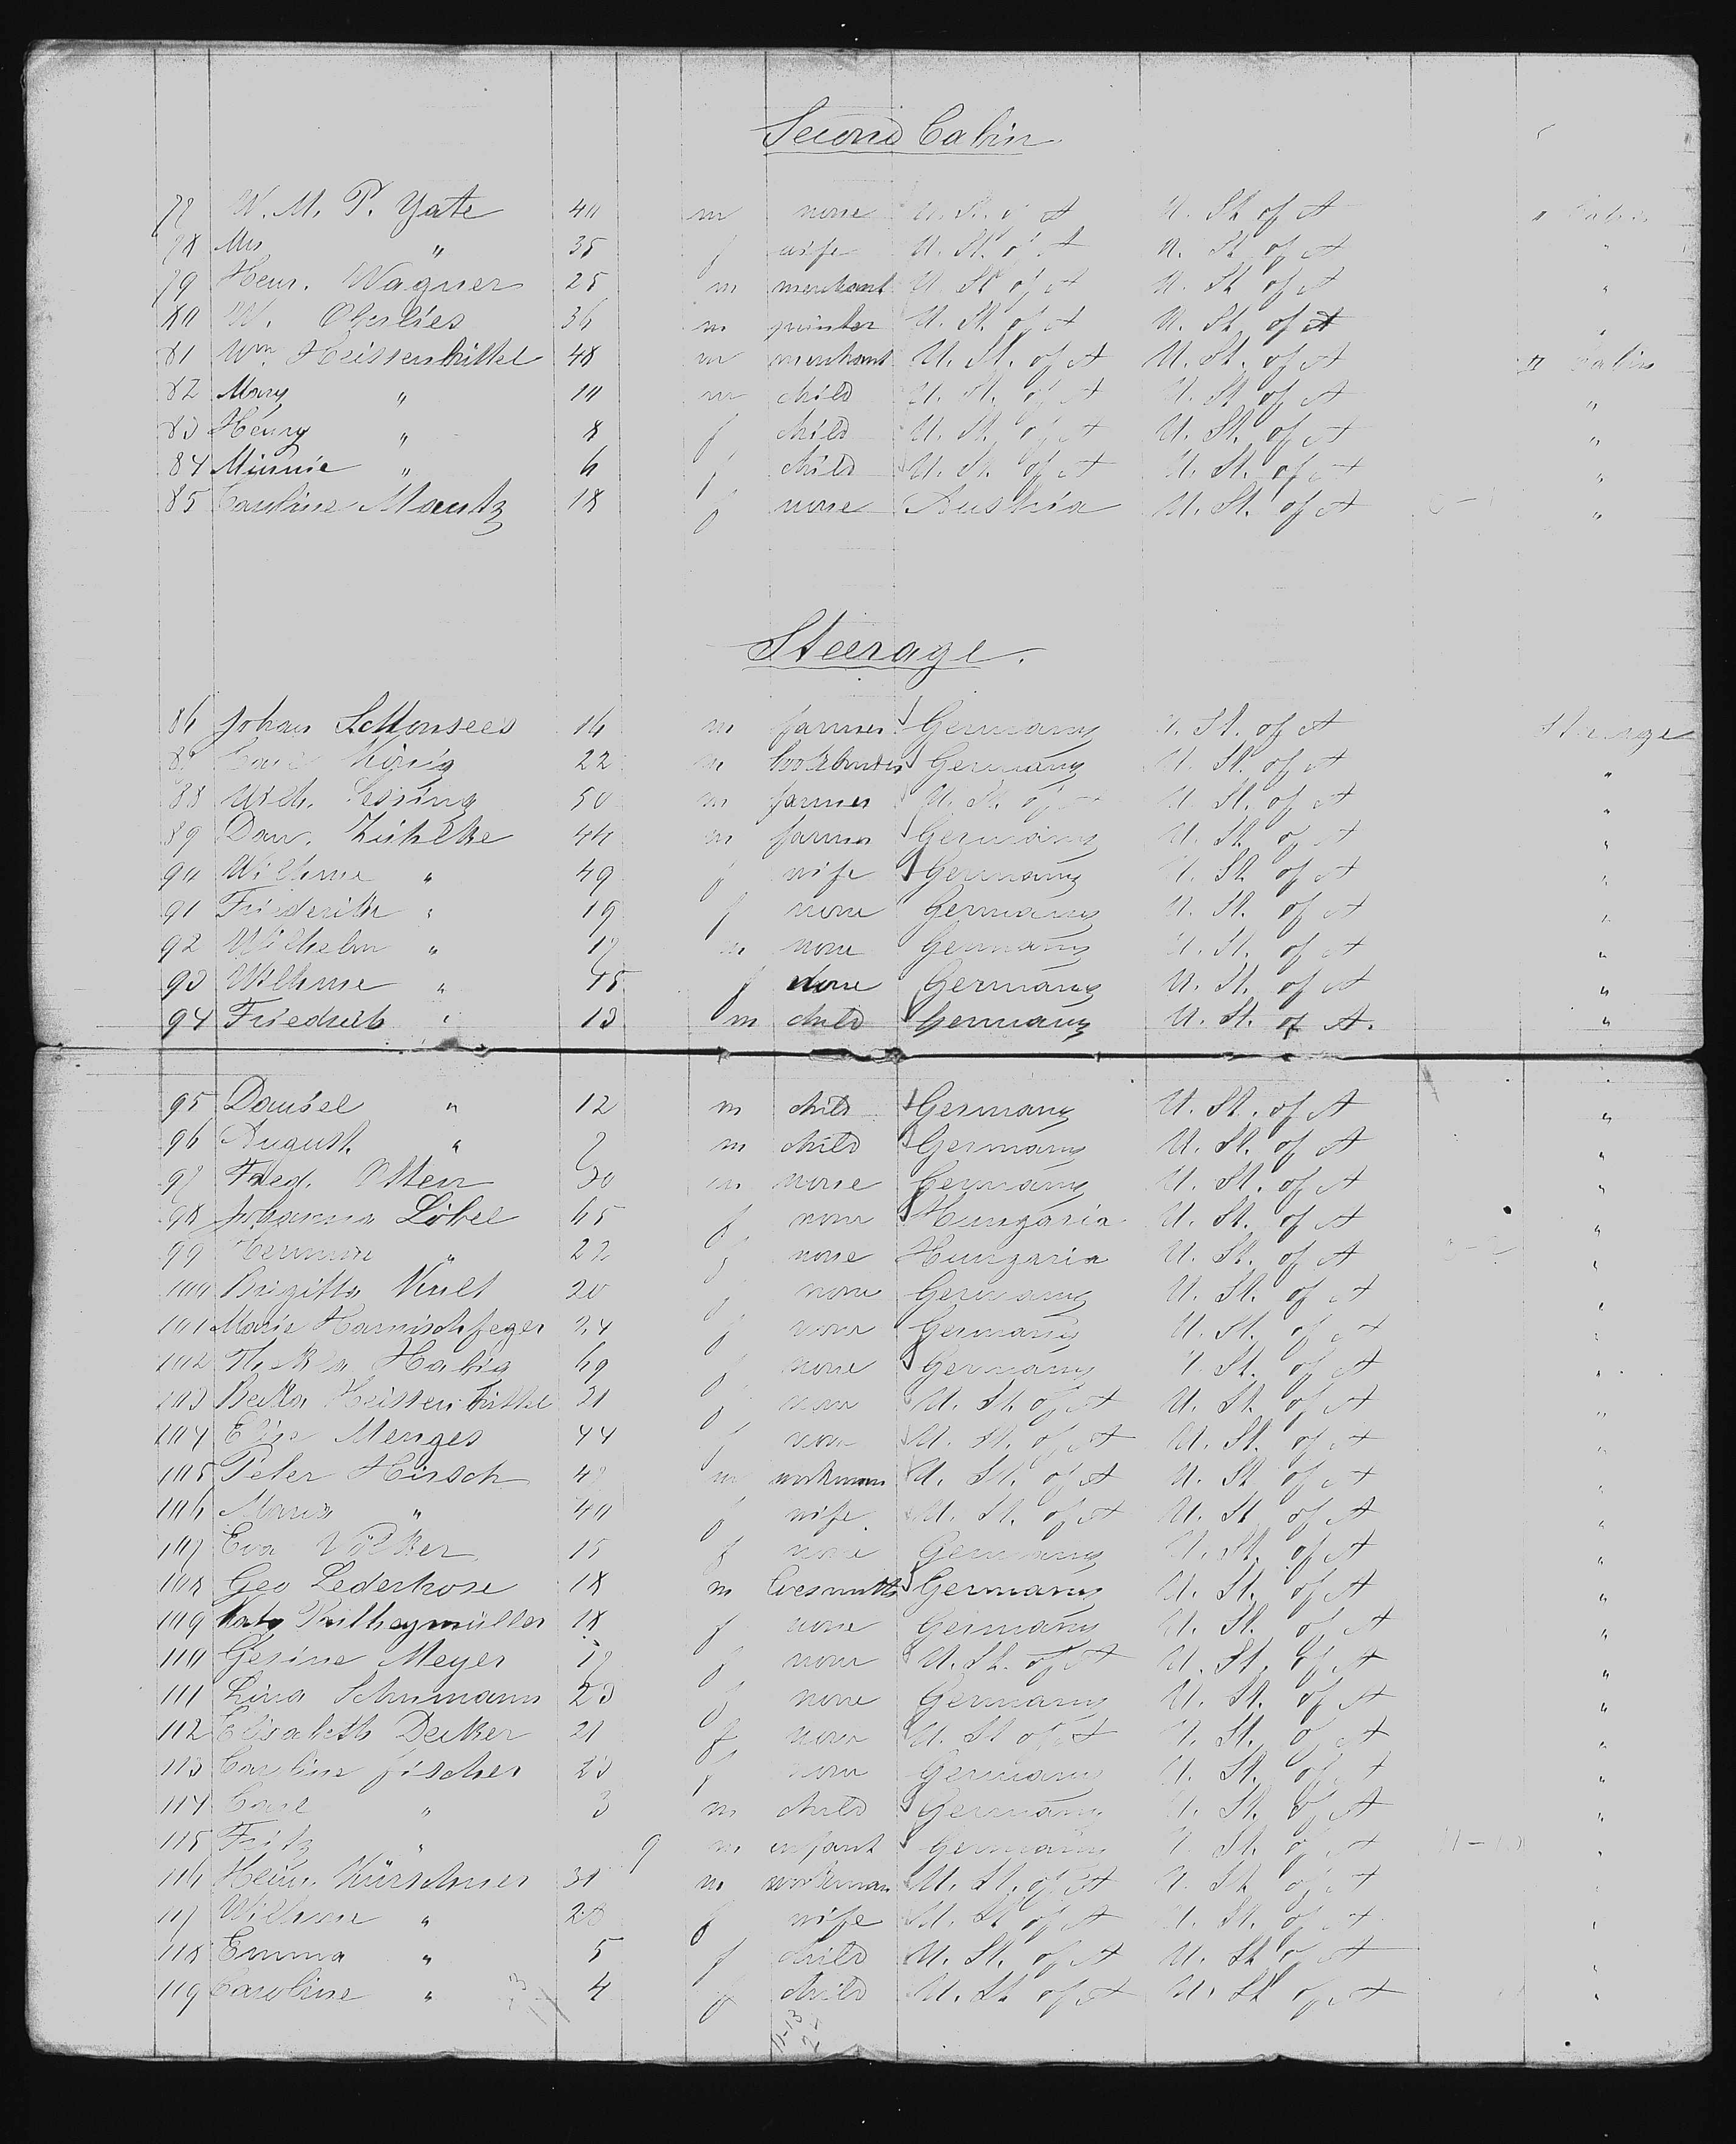 Second Cabin
77 W. M. P. Yate 40 m none U. St. of A U. St. of A II Cabin
78 Mrs " 35 f wife U. St. of A U. St. of A "
79 Heinr. Wagner 25 m merchant U. St. of A U. St. of A "
80 W. Oherlies 36 m printer U. St. of A U. St. of A "
81 Wm Heissenbüttel 48 m merchant U. St. of A U. St. of A II Cabin
82 Mary " 10 m child U. St. of A U. St. of A "
83 Henry " 8 f child U. St. of A U. St. of A "
84 Minnie " 6 f child U. St. of A U. St. of A "
85 Caroline Mautz 18 f none Austria U. St. of A "
Steerage.
86 Johan 16 m farmer Germany U. St. of A Steerage
87 König 22 m bookbinder Germany U. St. of A "
88 50 m farmer U. St. of A U. St. of A "
89 Dan. Zühlke 44 m farmer Germany U. St. of A "
90 Wilhme " 49 f wife Germany U. St. of A "
91 Friederike " 19 f none Germany U. St. of A "
92 Wilhelm " 17 m none Germany U. St. of A "
93 Wilhme " 15 f none Germany U. St. of A "
94 Friedrich " 13 m child Germany U. St. of A. "
95 Daniel " 12 m child Germany U. St. of A "
96 August " 7 m child Germany U. St. of A "
97 Fred. Otten 30 m none Germany U. St. of A "
98 Johanna Löbel 65 f none Hungaria U. St. of A "
99 Hermine " 22 f none Hungaria U. St. of A "
100 Brigitta 20 f none Germany U. St. of A "
101 Marie Harnischfeger 24 f none Germany U. St. of A "
102 Thekla Habig 69 f none Germany U. St. of A "
103 Becka Heissenbüttel 21 f none U. St. of A U. St. of A "
104 Elise Menges 44 f none U. St. of A U. St. of A "
105 Peter Hirsch m workman U. St. of A U. St. of A "
106 Maria " 40 f wife U. St. of A U. St. of A "
107 Eva Völker 15 f none Germany U. St. of A "
108 Geo Lederhose 18 m Germany U. St. of A "
109 18 f none Germany U. St. of A "
110 Gesine Meyer f none U. St. of A U. St. of A "
111 Lina Schumann 23 f none Germany U. St. of A "
112 Elisabeth Decker 21 f none U. St. of A U. St. of A "
113 Caroline Fischer 23 f none Germany U. St. of A "
114 Carl " 3 m child Germany U. St. of A "
115 Fritz " 9 m infant Germany U. St. of A "
116 Heinr. Kürschner 31 m workman U. St. of A U. St. of A "
117 Wilhme " 28 f wife U. St. of A U. St. of A "
118 Emma " 5 f child U. St. of A U. St. of A "
119 Caroline " 4 f child U. St. of A U. St. of A "